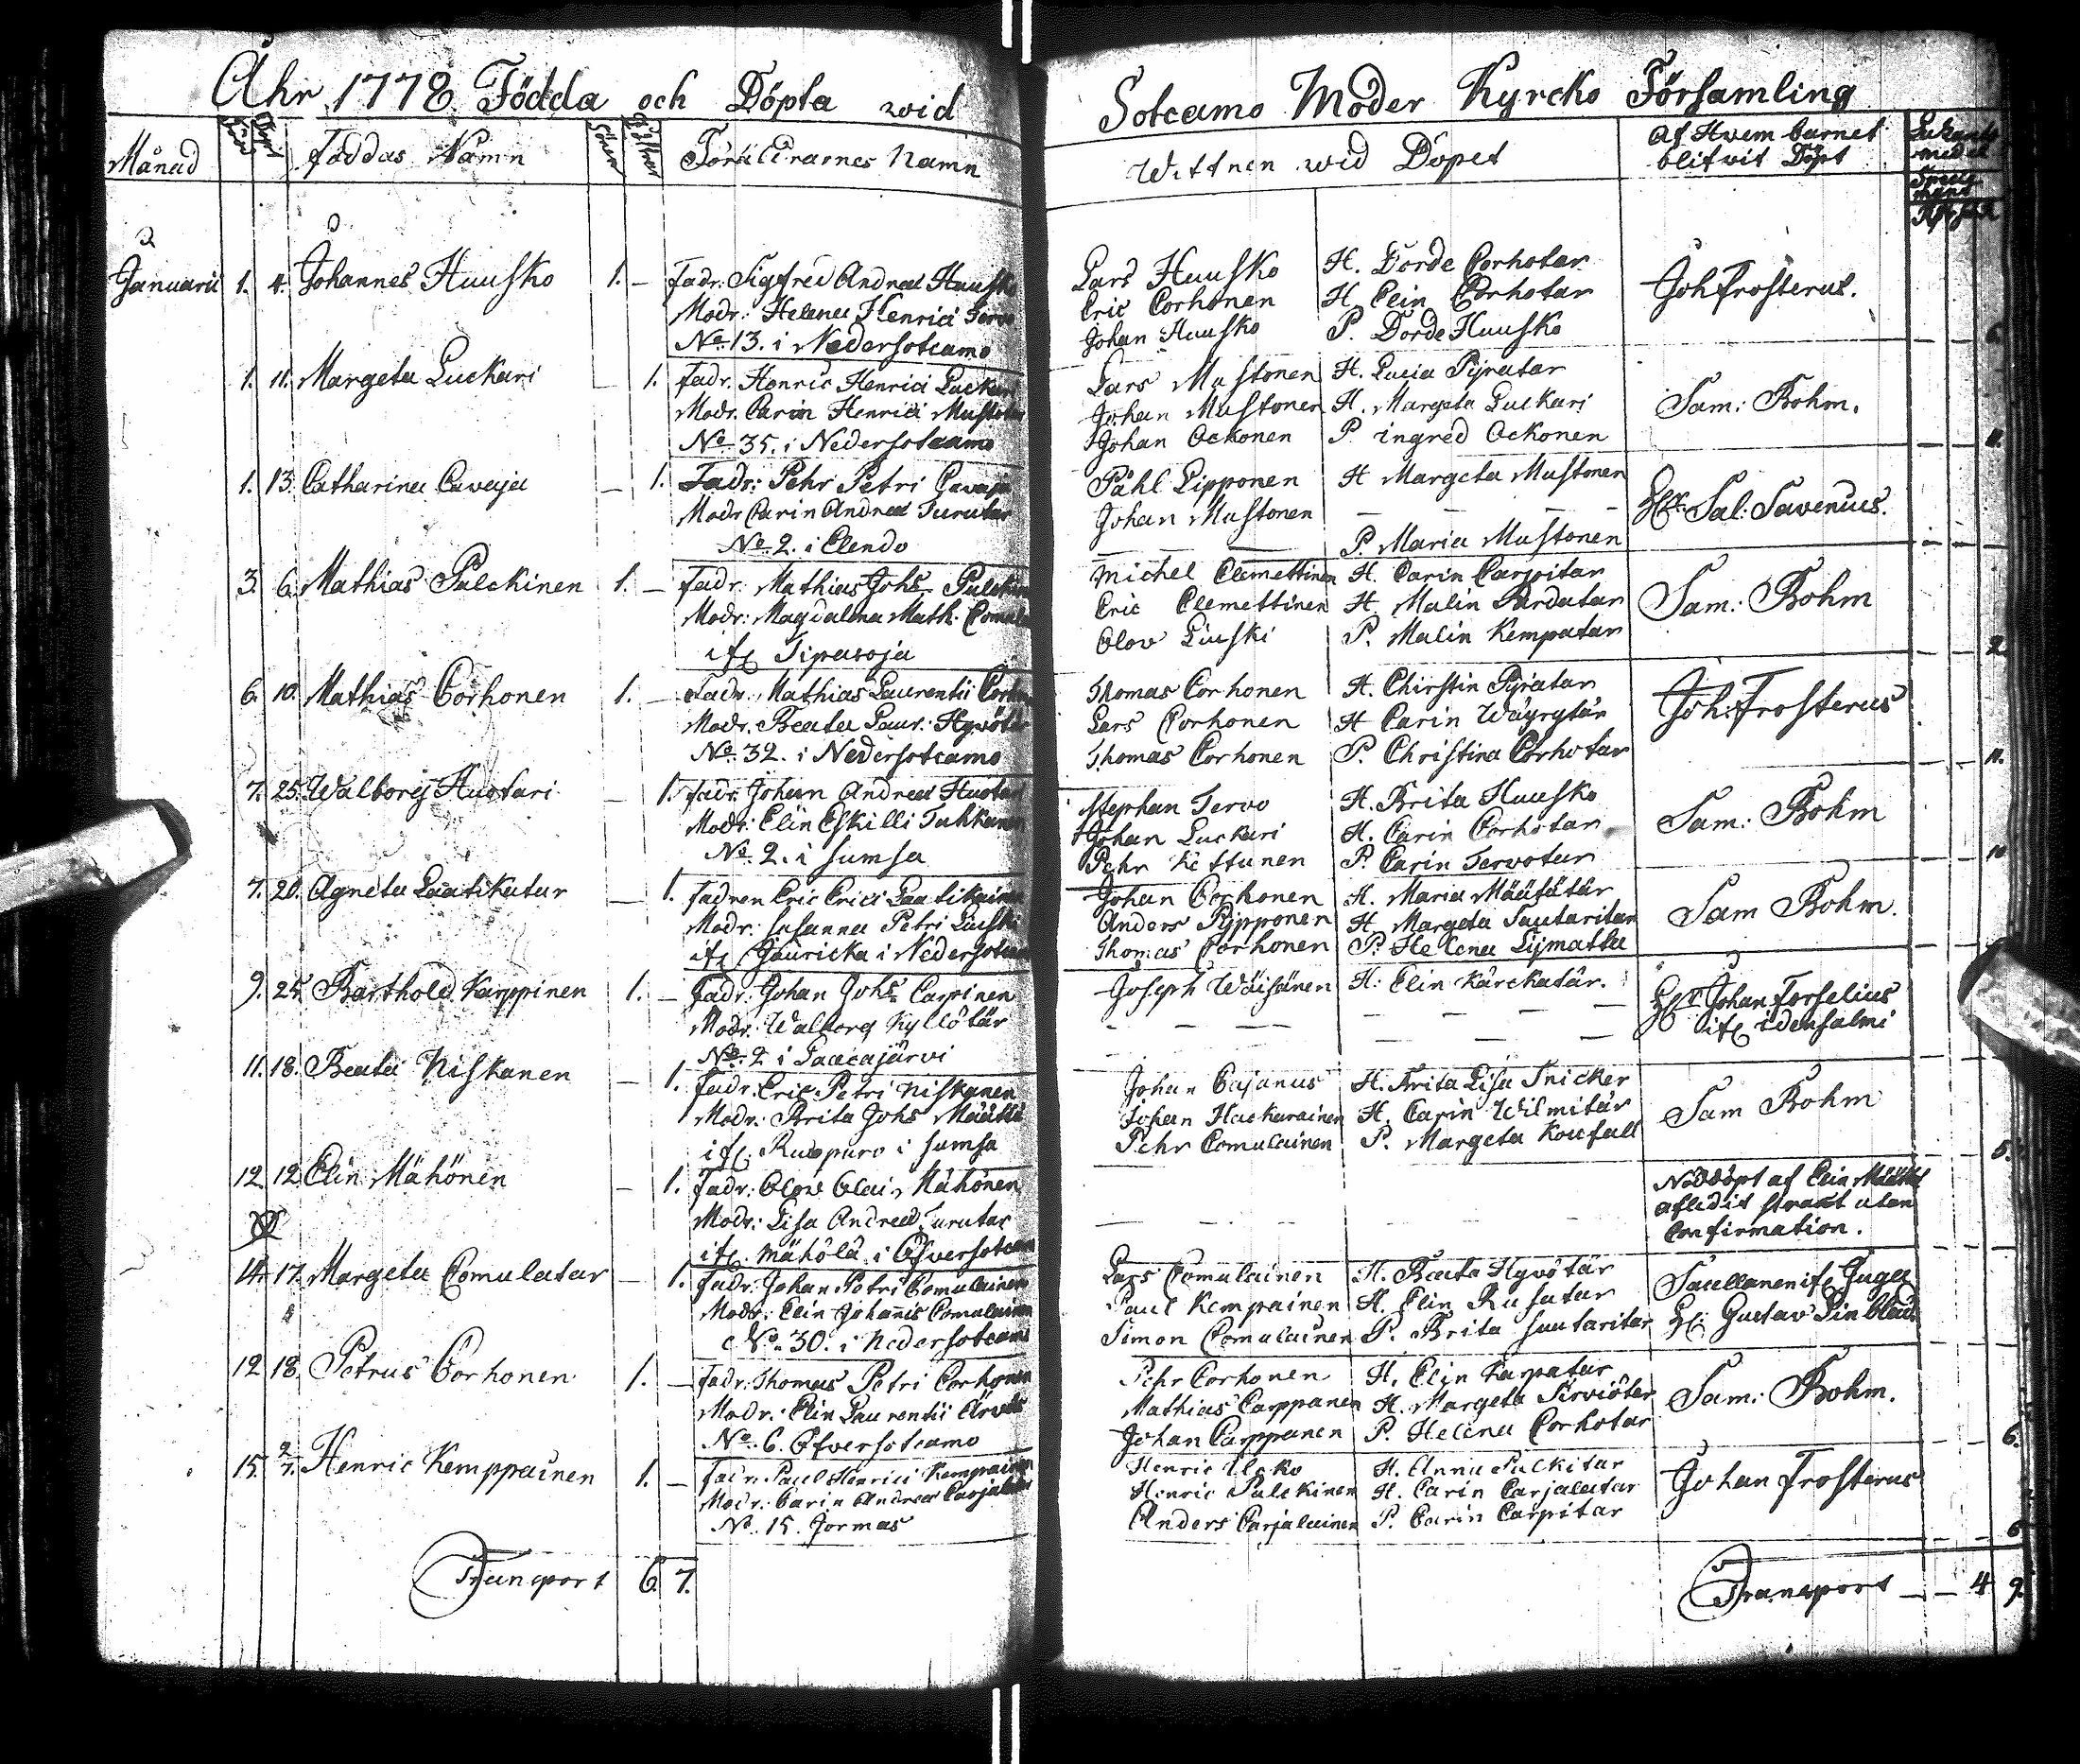 Åhr 1778 Födda och Döpta wid
Månad Född Döpt Föddas Namn Söner Döttrar Föräldrarnes Namn
Januarii 1. 4. Johannes Huusko 1. — Fadr: Sigfred Andreæ Huusko
Modr: Helena Henrici Tervo
No 13. i Nedersotcamo
1. 11. Margeta Luckari — 1. Fadr. Henric Henrici Luckari
Modr. Carin Henrici Mustotar
No 35. i Nedersotcamo
1. 13. Catharina Cavaja — 1. Fadr: Pehr Petri Cavaja
Modr Carin Andreæ Turutar
No 2. i Clendo
3. 6. Mathias Pulckinen 1. — Fadr: Mathias Johs Pulckinen
Modr: Magdalena Math. Comula
if: Tipasoja
6. 10. Mathias Corhonen 1. — Fadr: Mathias Laurentii Corhonen
Modr. Beata Laur: Hyvötär
No 32. i Nedersotcamo
7. 25. Walborg Huotari — 1. Fadr. Johan Andreæ Huotari
Modr: Elin Eskilli Tuhkanen
No 2. i Sumsa
7. 20. Agneta Laatikatar — 1. Fadren Eric Erici Laatikainen
Modr: Susanna Petri Liuski
if: Jauricka i Nedersotcamo
9. 25. Barthold Karppinen 1. — Fadr: Johan Johs Carpinen
Modr: Walborg Kyllötär
No 2 i Laacajärvi
11. 18. Beata Niskanen — 1. Fadr: Eric Petri Niskanen
Modr: Brita Johs Määttä
if: Ruopuro i Sumsa
12. 12. Elin Mähönen — 1. Fadr: Olow Olai Mähönen
Modr: Lisa Andreæ Turutar
if: Mähölä i Öfversotcamo
14. 17. Margeta Comulatar — 1. Fadr: Johan Petri Comulainen
Modr: Elin Johannis Comulainen
No 30. i Nedersotcamo
12 18. Petrus Corhonen 1. — Fadr: Thomas Petri Corhonen
Modr: Elin Laurentii
No. 6. Öfversotcamo
15. 2/7. Henric Kemppainen 1. — Fadr. Paul Henrici Kempainen
Modr: Carin Andreæ Carjalain
No. 15. Jormas
Transport 6. 7.
Sotcamo Moder Kyrcko Församling
Wittnen wid Dopet Af Hwem barnet
blifvit Döpt
Lars Huusko H. Dorde Corhotar Joh Frosterus.
Eric Corhonen H. Elin Corhotar
Johan Huusko P. Dorde Huusko 6.
Lars Mustonen H. Lucia Pyratar Sam: Bohm.
Johan Mustonen H. Margeta Luckari
Johan Ockonen P. ingred Ockonen 11.
Påhl Lipponen H Margeta Mustonen Sal: Savenius.
Johan Mustonen — — — —
P. Maria Mustonen
Michel Clemettinen H. Carin Carpitar Sam: Bohm
Eric Clemettinen H. Malin Pardatar
Olov Liuski P. Malin Kempatar 2.
Thomas Corhonen H. Chirstin Pyratar Joh: Frosterus
Lars Corhonen H Carin Wäyrytär
Thomas Corhonen P. Christina Corhotar 11.
Stephan Tervo H. Brita Huusko Sam: Bohm
Johan Luckari H. Carin Corhotar
Pehr Kettunen P. Carin Tervotar 10
Johan Corhonen H. Maria Määtätär Sam Bohm.
Anders Pypponen H. Margeta Sautaritar
Thomas Corhonen P. Helena Lijmatta
Joseph Wäisänen H: Elin Kärckatär. Johan Forselius
— — — — — — if: idensalmi
Johan Cajanus H. Brita Lisa Snicker Sam Bohm
Johan Hackarainen H. Carin Wilmitär
Pehr Comulainen P. Margeta Koufall 5.
Nöddöpt af Elin Määttä
afledit straxt utan
Confirmation.
Lars Comulainen H. Beata Hyvötär
Paul Kempainen H. Elin Rusatar
Simon Comulainen P. Brita Sautaritar Gustav
Pehr Corhonen H. Elin Karpatar Sam: Bohm.
Mathias Carppanen H. Margeta Sirviötar
Johan Carppanen P. Helena Corhotar 6.
Henric H. Anna Pulckitar Johan Frosterus
Henric Pulckinen H. Carin Carjalatar
Anders Carjalainen P. Carin Carpitar 6
Transport — — 4 9.